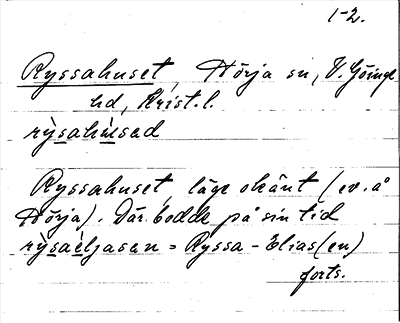 1-2.
Ryssahuset, Hörja sn, V. Göinge
hd, Krist. l.
rỳsahùsad
Ryssahuset, läge okänt (ev. å
Hörja). Där bodde på sin tid
rỳsaèljasen = Ryssa-Elias(en)
forts.